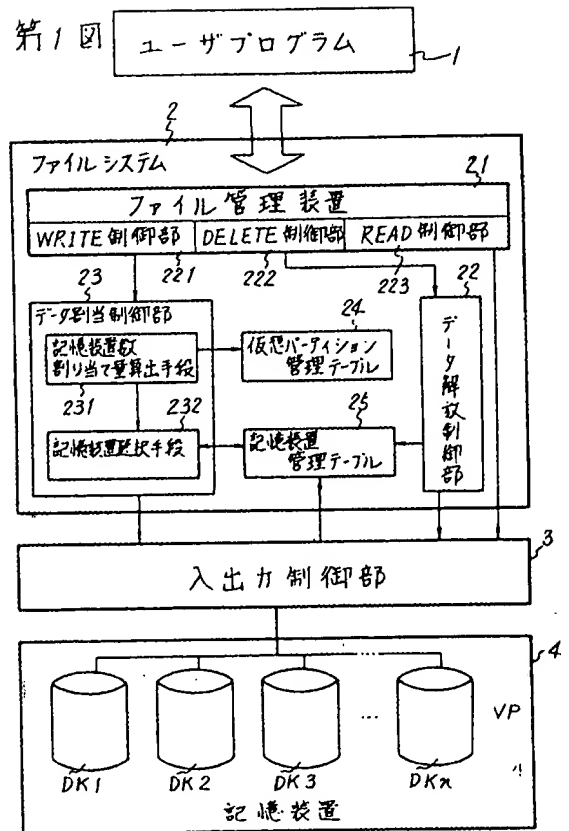 第1図
ユーザプログラム
1
2
ファイルシステム
21
ファイル管理装置
WRITE制御部
DELETE制御部
READ制御部
221
222
223
22
23
データ割当制御部
24
記憶装置数
割り当て量算出手段
仮想パーティション
管理テーブル
231
232
25
記憶装置選択手段
記憶装置
管理テーブル
データ解放制御部
3
入出力制御部
4
...
...
VP
DK1
DK2
DK3
DKn
記憶装置